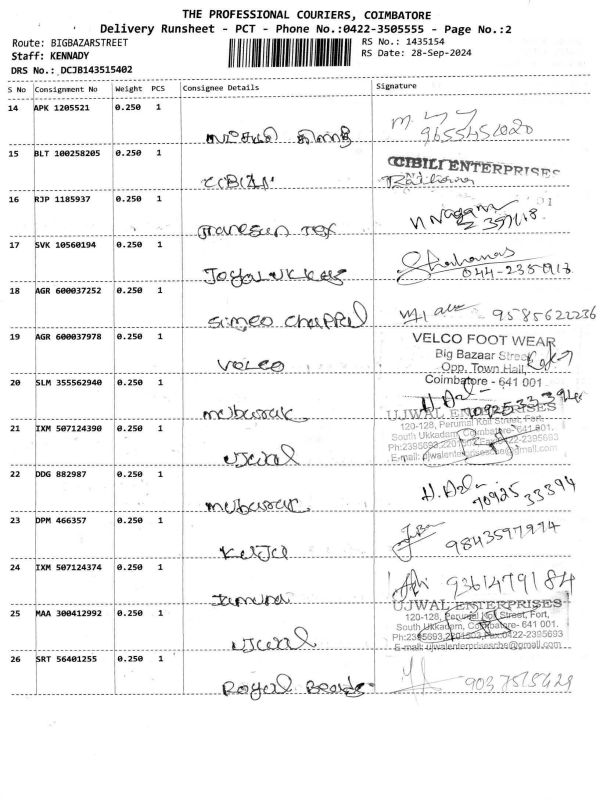 THE PROFESSIONAL COURIERS, COIMBATORE
Delivery Runsheet - PCT - Phone No.:0422-3505555 - Page No.:2
Route: BIGBAZARSTREET
RS No.: 1435154
Staff: KENNADY
RS Date: 28-Sep-2024
DRS No.: DCJB143515402
S No Consignment No Weight PCS Consignee Details Signature
14 APK 1205521 0.250 1
9655451020
15 BLT 100258205 0.250 1
CIBILI ENTERPRISES
CIBILI
16 RJP 1185937 0.250 1
17 SVK 10560194 0.250 1
Shahanas
18 AGR 600037252 0.250 1
Simco Chappal 9585622236
19 AGR 600037978 0.250 1
VELCO FOOT WEAR
Big Bazaar Street
Opp. Town Hall,
Coimbatore - 641 001
Velco
20 SLM 355562940 0.250 1
Mubarak 7092533394
21 IXM 507124390 0.250 1
UJWAL ENTERPRISES
120-128, Perumal Koil Street, Fort,
South Ukkadam, Coimbatore- 641 001.
Ph:2395693,2201503,Fax:0422-2395693
E-mail: ujwalenterprisescbe@gmail.com
Ujwal
22 DDG 882987 0.250 1
Mubarak 7092533394
23 DPM 466357 0.250 1
9843597974
24 IXM 507124374 0.250 1
Jamuna 9361479184
25 MAA 300412992 0.250 1
UJWAL ENTERPRISES
120-128, Perumal Koil Street, Fort,
South Ukkadam, Coimbatore- 641 001.
Ph:2395693,2201503,Fax:0422-2395693
E-mail: ujwalenterprisescbe@gmail.com
Ujwal
26 SRT 56401255 0.250 1
Royal Beards 9037515429